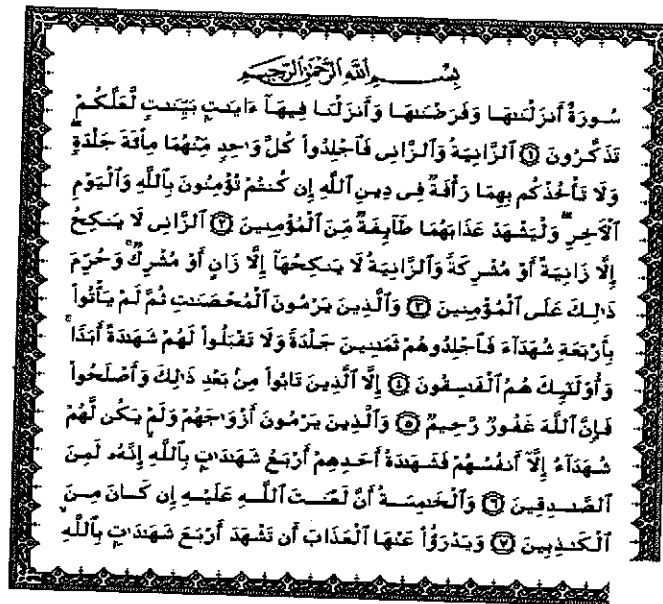 بِسْمِ اللَّهِ الرَّحْمَٰنِ الرَّحِيمِ
سُورَةٌ أَنزَلْنَٰهَا وَفَرَضْنَٰهَا وَأَنزَلْنَا فِيهَآ ءَايَٰتٍۭ بَيِّنَٰتٍ لَّعَلَّكُمْ
تَذَكَّرُونَ ۝١ ٱلزَّانِيَةُ وَٱلزَّانِى فَٱجْلِدُوا۟ كُلَّ وَٰحِدٍ مِّنْهُمَا مِا۟ئَةَ جَلْدَةٍ ۖ
وَلَا تَأْخُذْكُم بِهِمَا رَأْفَةٌ فِى دِينِ ٱللَّهِ إِن كُنتُمْ تُؤْمِنُونَ بِٱللَّهِ وَٱلْيَوْمِ
ٱلْءَاخِرِ ۖ وَلْيَشْهَدْ عَذَابَهُمَا طَآئِفَةٌ مِّنَ ٱلْمُؤْمِنِينَ ۝٢ ٱلزَّانِى لَا يَنكِحُ
إِلَّا زَانِيَةً أَوْ مُشْرِكَةً وَٱلزَّانِيَةُ لَا يَنكِحُهَآ إِلَّا زَانٍ أَوْ مُشْرِكٌ ۚ وَحُرِّمَ
ذَٰلِكَ عَلَى ٱلْمُؤْمِنِينَ ۝٣ وَٱلَّذِينَ يَرْمُونَ ٱلْمُحْصَنَٰتِ ثُمَّ لَمْ يَأْتُوا۟
بِأَرْبَعَةِ شُهَدَآءَ فَٱجْلِدُوهُمْ ثَمَٰنِينَ جَلْدَةً وَلَا تَقْبَلُوا۟ لَهُمْ شَهَٰدَةً أَبَدًا ۚ
وَأُو۟لَٰٓئِكَ هُمُ ٱلْفَٰسِقُونَ ۝٤ إِلَّا ٱلَّذِينَ تَابُوا۟ مِنۢ بَعْدِ ذَٰلِكَ وَأَصْلَحُوا۟
فَإِنَّ ٱللَّهَ غَفُورٌ رَّحِيمٌ ۝٥ وَٱلَّذِينَ يَرْمُونَ أَزْوَٰجَهُمْ وَلَمْ يَكُن لَّهُمْ
شُهَدَآءُ إِلَّآ أَنفُسُهُمْ فَشَهَٰدَةُ أَحَدِهِمْ أَرْبَعُ شَهَٰدَٰتٍۭ بِٱللَّهِ ۙ إِنَّهُۥ لَمِنَ
ٱلصَّٰدِقِينَ ۝٦ وَٱلْخَٰمِسَةُ أَنَّ لَعْنَتَ ٱللَّهِ عَلَيْهِ إِن كَانَ مِنَ
ٱلْكَٰذِبِينَ ۝٧ وَيَدْرَؤُا۟ عَنْهَا ٱلْعَذَابَ أَن تَشْهَدَ أَرْبَعَ شَهَٰدَٰتٍۭ بِٱللَّهِ ۙ